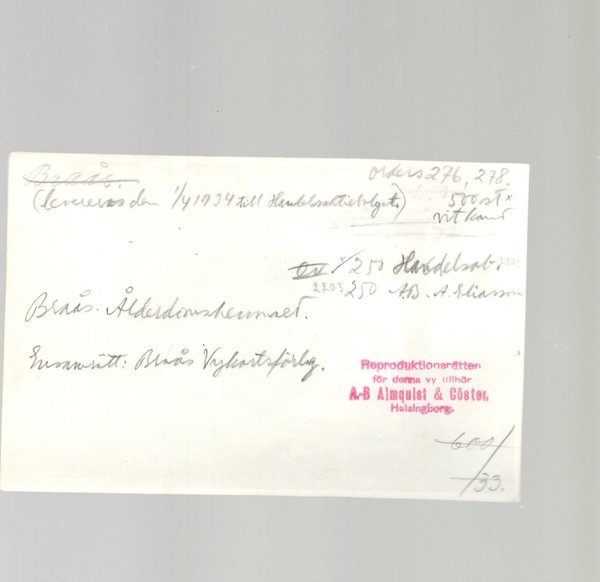 Braås.
orders 276, 278.
(levereras den 1/4 1934 till Handelsaktiebolaget.)
500 st x
vit kant
x/250 Handelsab.
2203 250 A.B. A. Eliasson
Braås. Ålderdomshemmet.
Ensamrätt: Braås Vykortsförlag.
Reproduktionsrätten
för denna vy tillhör
A.-B Almquist & Cöster,
Helsingborg.
600/
/33.